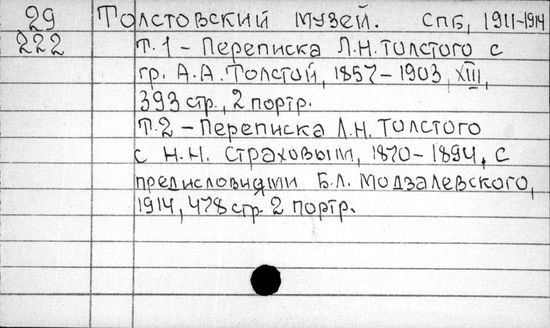 29 Толстовский музей. СПб, 1911-1914
222 Т.1 - Переписка Л.Н. Толстого с
гр. А.А. Толстой, 1857-1903, XIII,
393 стр., 2 портр.
Т.2 - Переписка Л.Н. Толстого
с Н.Н. Страховым, 1870-1894, с
предисловиями Б.Л. Модзалевского,
1914, 478 стр. 2 портр.